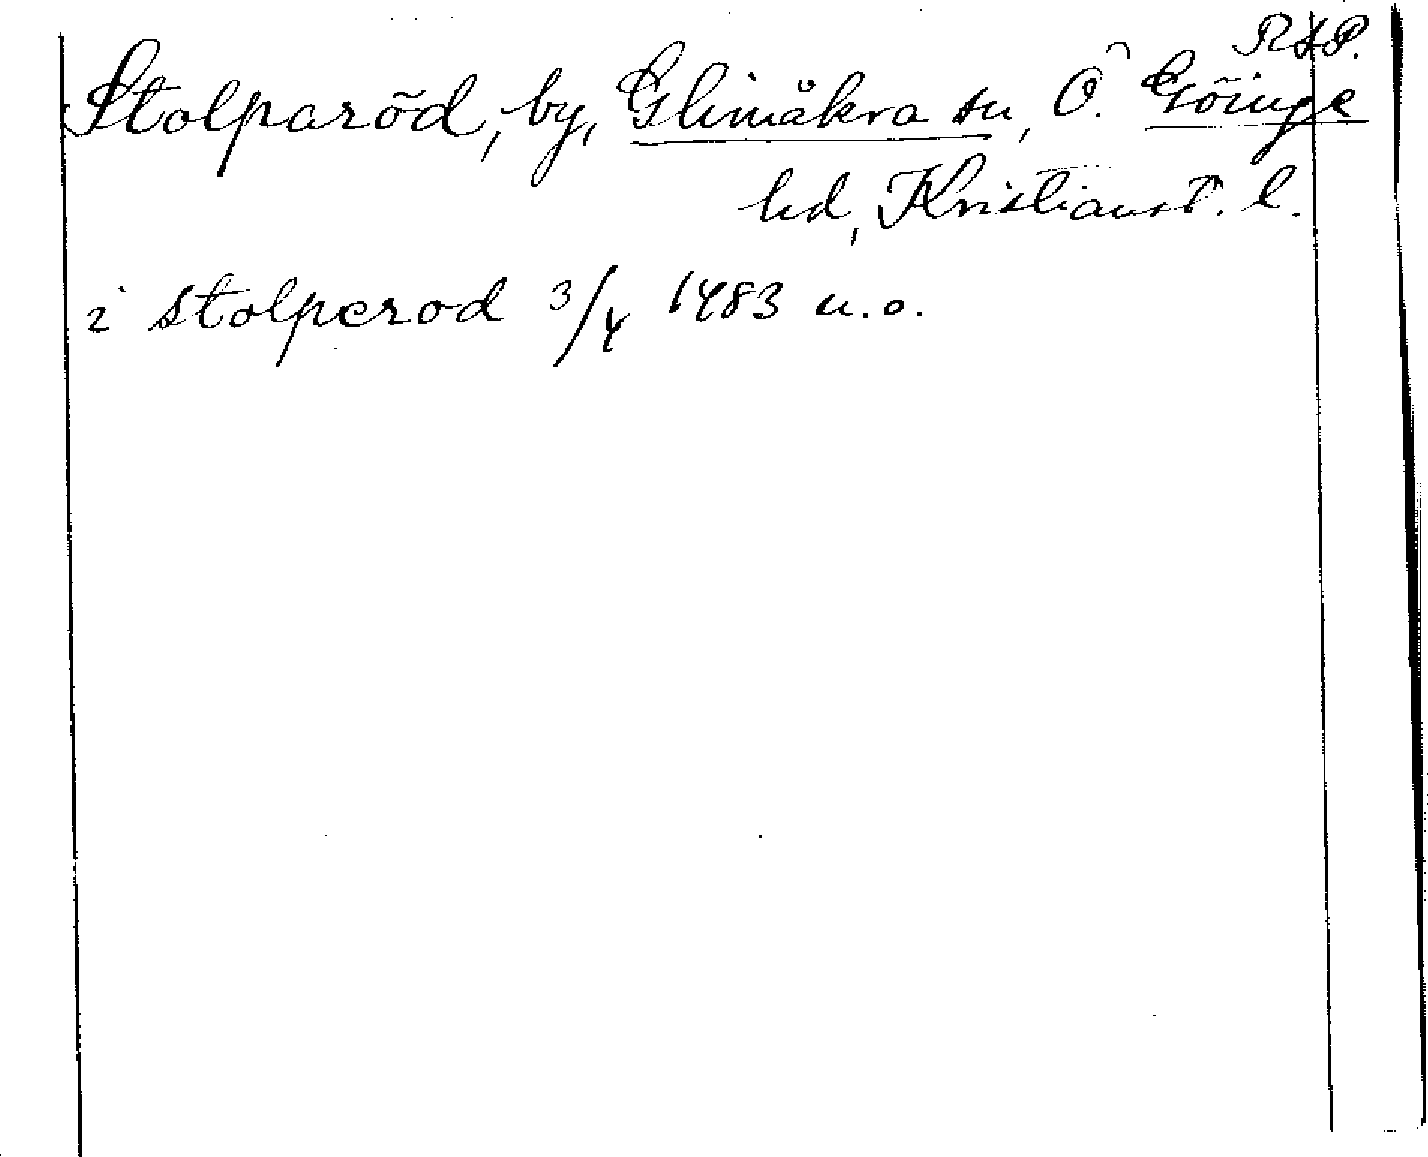 R&P.
Stolparöd, by, Glimåkra sn, Ö. Göinge
hd, Kristianst. l.
i stolperod 3/4 1483 u.o.